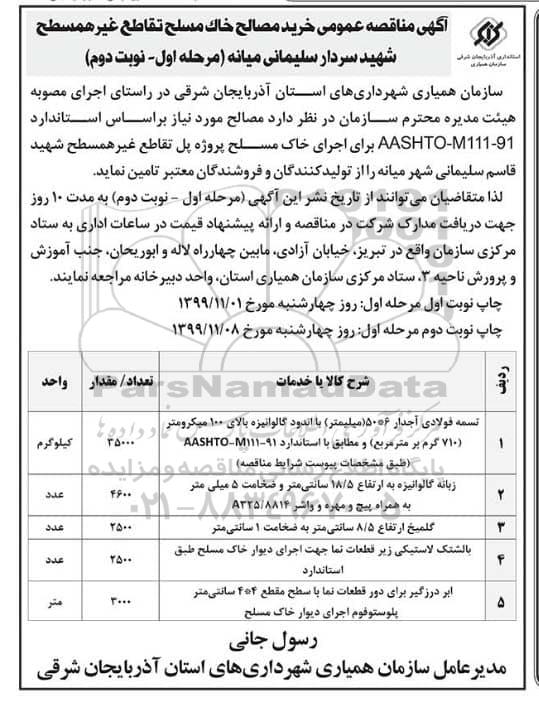 آگهی مناقصه عمومی خرید مصالح خاک مسلح تقاطع غیرهمسطح
شهید سردار سلیمانی میانه (مرحله اول- نوبت دوم)
استانداری آذربایجان شرقی
سازمان همیاری
سازمان همیاری شهرداری‌های استان آذربایجان شرقی در راستای اجرای مصوبه
هیئت مدیره محترم سازمان در نظر دارد مصالح مورد نیاز براساس استاندارد
AASHTO-M111-91 برای اجرای خاک مسلح پروژه پل تقاطع غیرهمسطح شهید
قاسم سلیمانی شهر میانه را از تولیدکنندگان و فروشندگان معتبر تامین نماید.
لذا متقاضیان می‌توانند از تاریخ نشر این آگهی (مرحله اول – نوبت دوم) به مدت ۱۰ روز
جهت دریافت مدارک شرکت در مناقصه و ارائه پیشنهاد قیمت در ساعات اداری به ستاد
مرکزی سازمان واقع در تبریز، خیابان آزادی، مابین چهارراه لاله و ابوریحان، جنب آموزش
و پرورش ناحیه ۳، ستاد مرکزی سازمان همیاری استان، واحد دبیرخانه مراجعه نمایند.
چاپ نوبت اول مرحله اول: روز چهارشنبه مورخ ۱۳۹۹/۱۱/۰۱
چاپ نوبت دوم مرحله اول: روز چهارشنبه مورخ ۱۳۹۹/۱۱/۰۸
ردیف شرح کالا یا خدمات تعداد/ مقدار واحد
تسمه فولادی آجدار ۶*۵۰(میلیمتر) با اندود گالوانیزه بالای ۱۰۰ میکرومتر
۱ (۷۱۰ گرم بر مترمربع) و مطابق با استاندارد AASHTO-M111-91 ۳۵۰۰۰ کیلوگرم
(طبق مشخصات پیوست شرایط مناقصه)
زبانه گالوانیزه به ارتفاع ۱۸/۵ سانتی‌متر و ضخامت ۵ میلی متر
۲ به همراه پیچ و مهره و واشر A۳۲۵/۸۸۱۴ ۴۶۰۰ عدد
۳ گلمیخ ارتفاع ۸/۵ سانتی‌متر به ضخامت ۱ سانتی‌متر ۲۵۰۰ عدد
۴ بالشتک لاستیکی زیر قطعات نما جهت اجرای دیوار خاک مسلح طبق ۲۵۰۰ عدد
استاندارد
۵ ابر درزگیر برای دور قطعات نما با سطح مقطع ۴*۴ سانتی‌متر ۳۰۰۰ متر
پلوستوفوم اجرای دیوار خاک مسلح
ParsNamadData
۰۲۱-۸۸۳۴۹۶۷۰-۵
رسول جانی
مدیرعامل سازمان همیاری شهرداری‌های استان آذربایجان شرقی